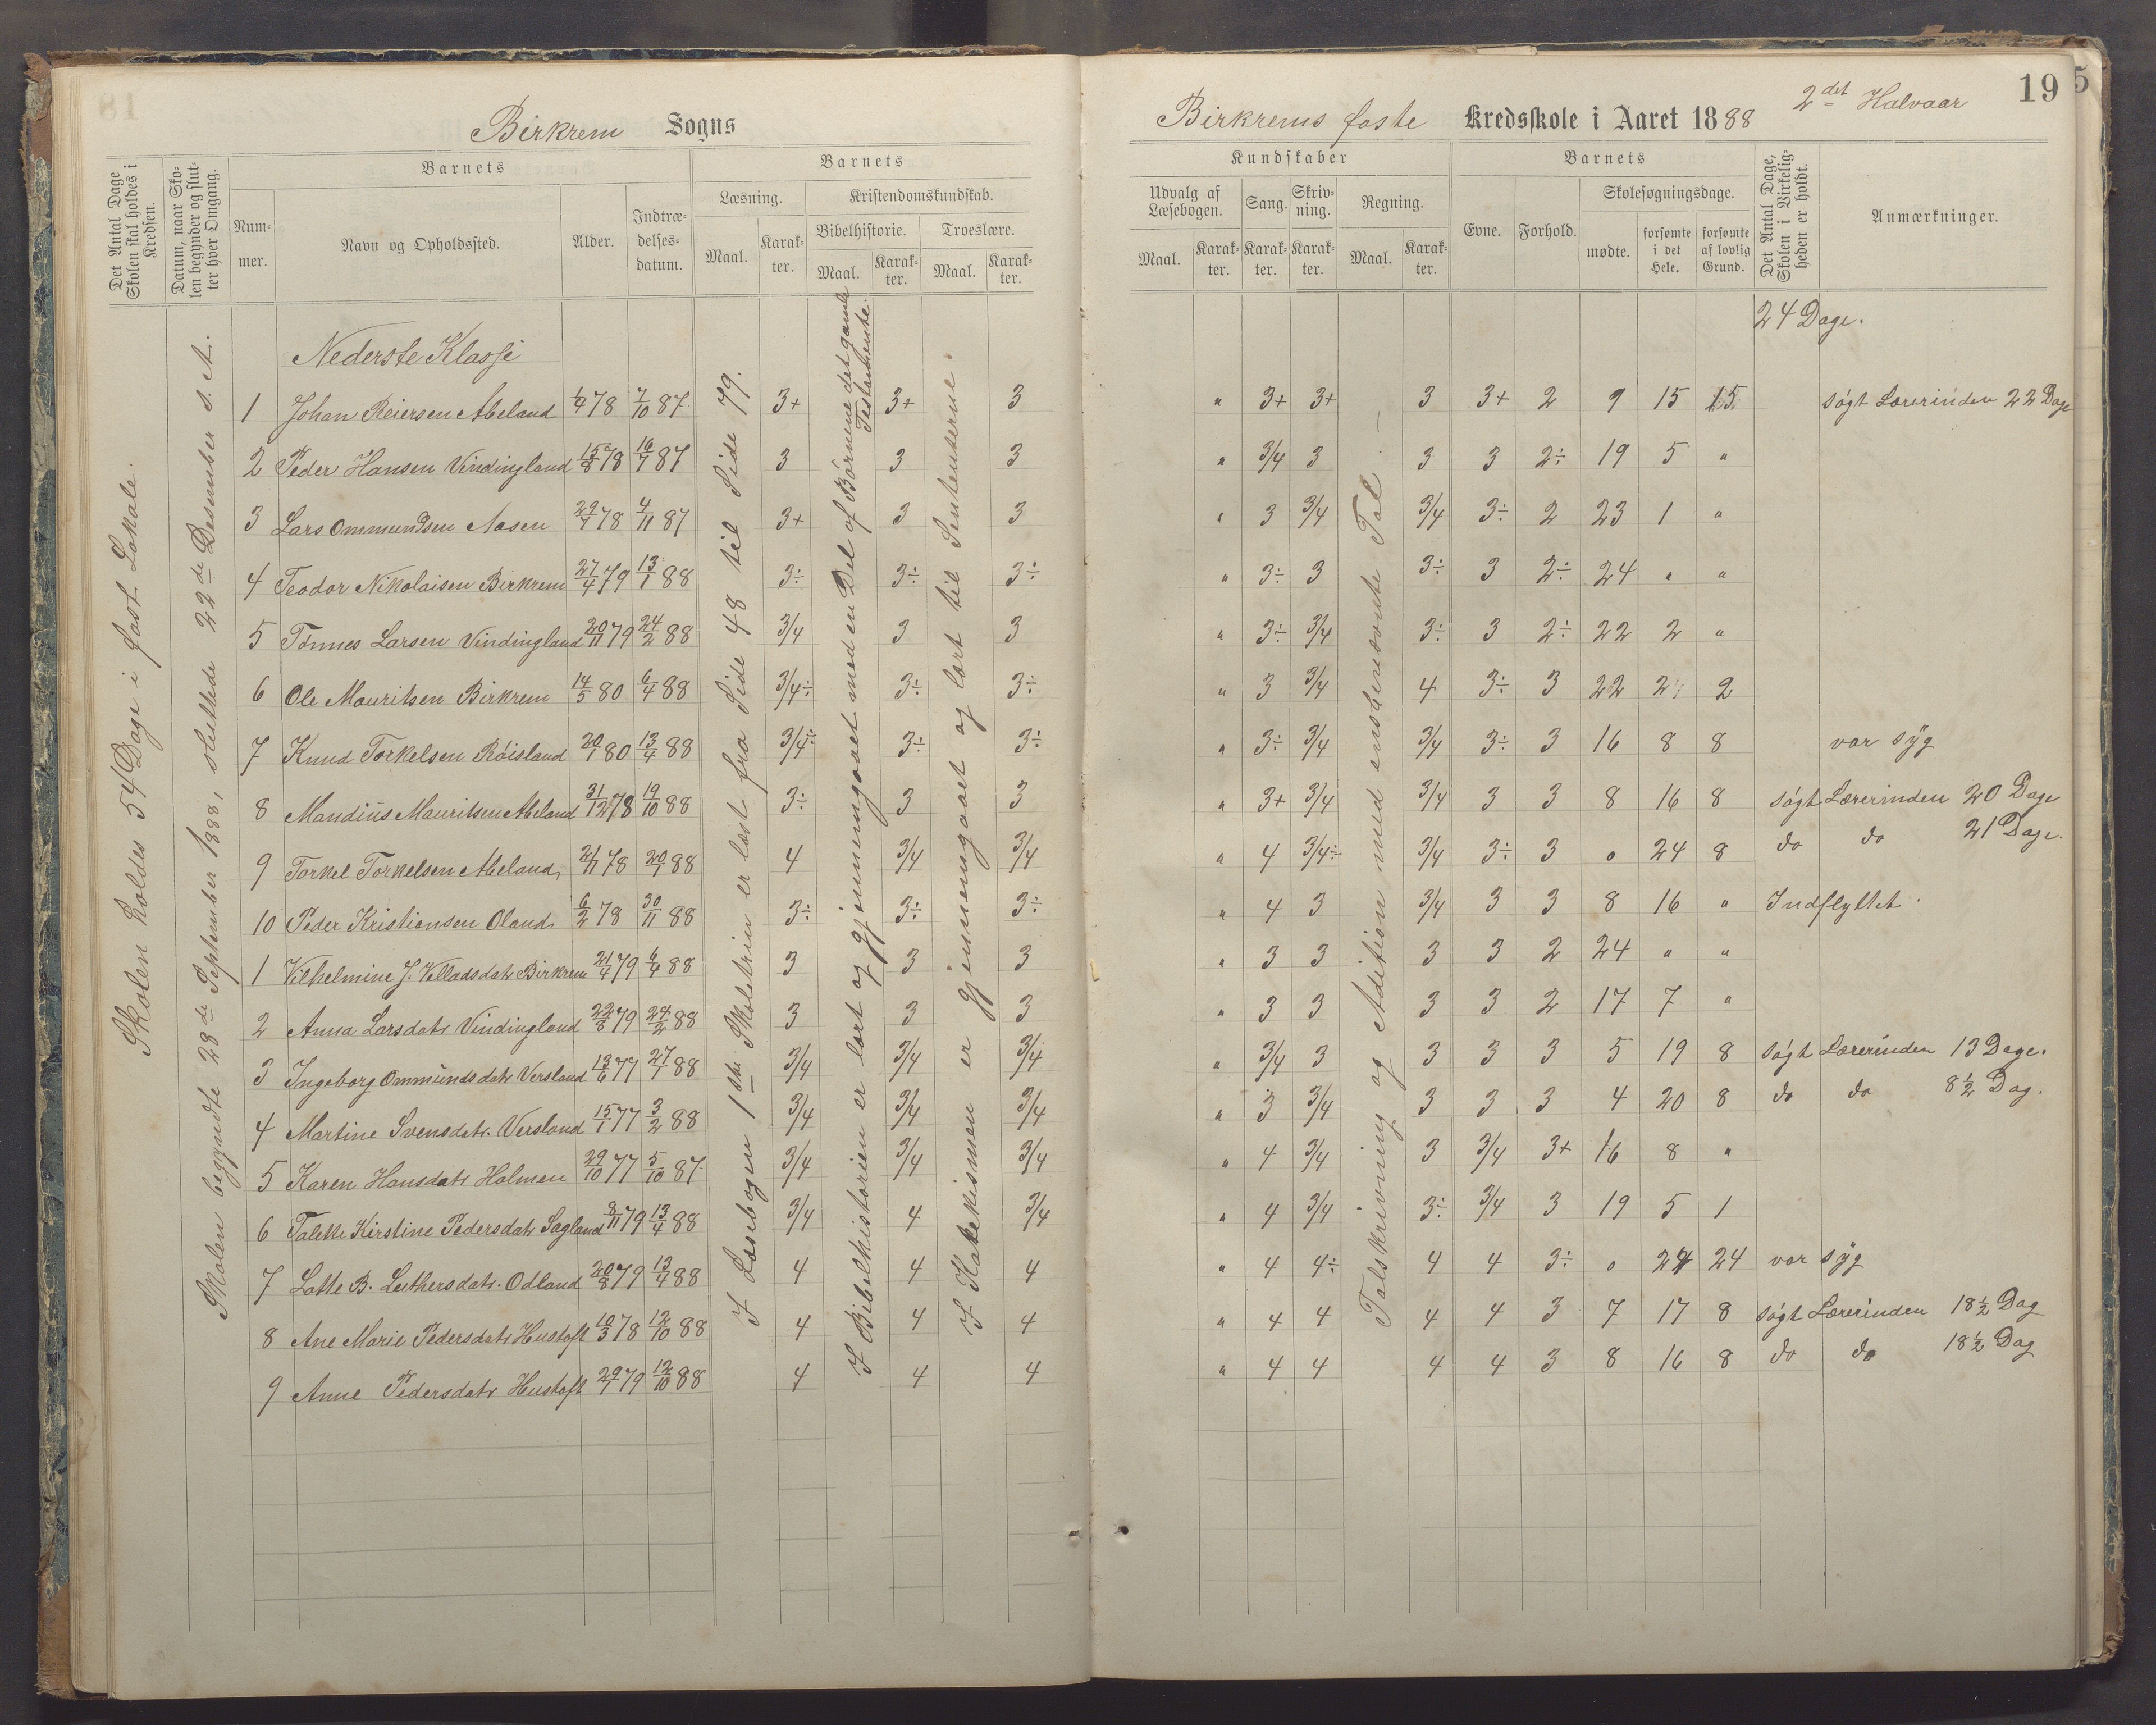 Birkrem Sogns
Birkrems faste Kredsskole i Aaret 1888 2det Halvaar
19
5
Det Antal Dage Skolen skal holdes i Kredsen.
Datum, naar Skolen begynder og slutter hver Omgang.
Barnets
Nummer.
Navn og Opholdssted.
Alder.
Indtrædelsesdatum.
Barnets
Læsning.
Maal.
Karakter.
Kristendomskundskab.
Bibelhistorie.
Maal.
Karakter.
Troeslære.
Maal.
Karakter.
Kundskaber
Udvalg af Læsebogen.
Maal.
Karakter.
Sang.
Karakter.
Skrivning.
Karakter.
Regning.
Maal.
Karakter.
Barnets
Evne.
Forhold.
Skolesøgningsdage.
mødte.
forsømte i det Hele.
forsømte af lovlig Grund.
Det Antal Dage, Skolen i Virkeligheden er holdt.
Anmærkninger.
Skolen holdes 54 Dage i fast Lokale.
Skolen begyndte 28de September 1888, sluttede 22de Desember s. A.
I Læsebogen 1ste Skoletrin er læst fra Side 48 til Side 79.
I Bibelhistorien er lært og gjennemgaaet med en Del af Børnene det gamle Testamente.
I Katekismen er gjennemgaaet og lært til Sententserne.
Talskrivning og Adition med ensbenævnte Tal.
24 Dage.
Nederste Klasse
1 Johan Reiersen Æbeland 1/4 78 7/10 87 3+ 3+ 3 " 3+ 3+ 3 3+ 2 9 15 15 søgt Lærerinden 22 Dage
2 Peder Hansen Vindingland 15/8 78 16/7 87 3 3 3 " 3/4 3 3 3 2÷ 19 5 "
3 Lars Ommundsen Aasen 29/7 78 4/11 87 3+ 3 3 " 3 3/4 3/4 3÷ 2 23 1 "
4 Teodor Nikolaisen Birkrem 27/4 79 13/1 88 3÷ 3÷ 3÷ " 3÷ 3 3÷ 3 2÷ 24 " "
5 Tønnes Larsen Vindingland 20/11 79 24/2 88 3/4 3 3 " 3÷ 3/4 3÷ 3 2÷ 22 2 "
6 Ole Mauritsen Birkrem 14/5 80 6/4 88 3/4÷ 3÷ 3÷ " 3 3/4 4 3÷ 3 22 2 2
7 Knud Torkelsen Røisland 20/1 80 13/4 88 3/4÷ 3÷ 3÷ " 3÷ 3/4 3/4 3÷ 3 16 8 8 var syg
8 Mandius Mauritsen Æbeland 31/12 78 19/10 88 3÷ 3 3 " 3+ 3/4 3/4 3 3 8 16 8 søgt Lærerinden 20 Dage
9 Torkel Torkelsen Æbeland 21/11 78 20/7 88 4 3/4 3/4 " 4 3/4÷ 3/4 3÷ 3 0 24 8 do do 21 Dage.
10 Peder Kristiansen Oland 6/2 78 30/11 88 3÷ 3÷ 3÷ " 4 3 3/4 3 3 8 16 " Indflyttet.
1 Vilhelmine J. Velladsdatr Birkrem 21/4 79 6/4 88 3 3 3 " 3 3 3 3 2 24 " "
2 Anna Larsdatr Vindingland 22/8 79 24/2 88 3 3 3 " 3 3 3 3 2 17 7 "
3 Ingeborg Ommundsdatr Versland 13/6 77 27/1 88 3/4 3/4 3/4 " 3/4 3 3 3 3 5 19 8 søgt Lærerinden 13 Dage.
4 Martine Svensdatr. Versland 15/1 77 3/2 88 3/4 3/4 3/4 " 3 3/4 3 3 3 4 20 8 do do 8½ Dag.
5 Karen Hansdatr Holmen 29/10 77 5/10 87 3/4 3/4 3/4 " 4 3/4 3 3/4 3+ 16 8 "
6 Talette Kirstine Pedersdatr Sagland 8/11 79 13/4 88 3/4 4 3/4 " 4 3/4 3÷ 3/4 3 19 5 1
7 Lotte B. Luthersdatr. Odland 20/8 79 13/4 88 4 4 4 " 4 4÷ 4 4 3÷ 0 24 24 var syg
8 Ane Marie Pedersdatr Hustoft 10/3 78 12/10 88 4 4 4 " 4 4 4 4 3 7 17 8 søgt Lærerinden 18½ Dag
9 Anne Pedersdatr Hustoft 29/7 79 12/10 88 4 4 4 " 4 4 4 4 3 8 16 8 do do 18½ Dag